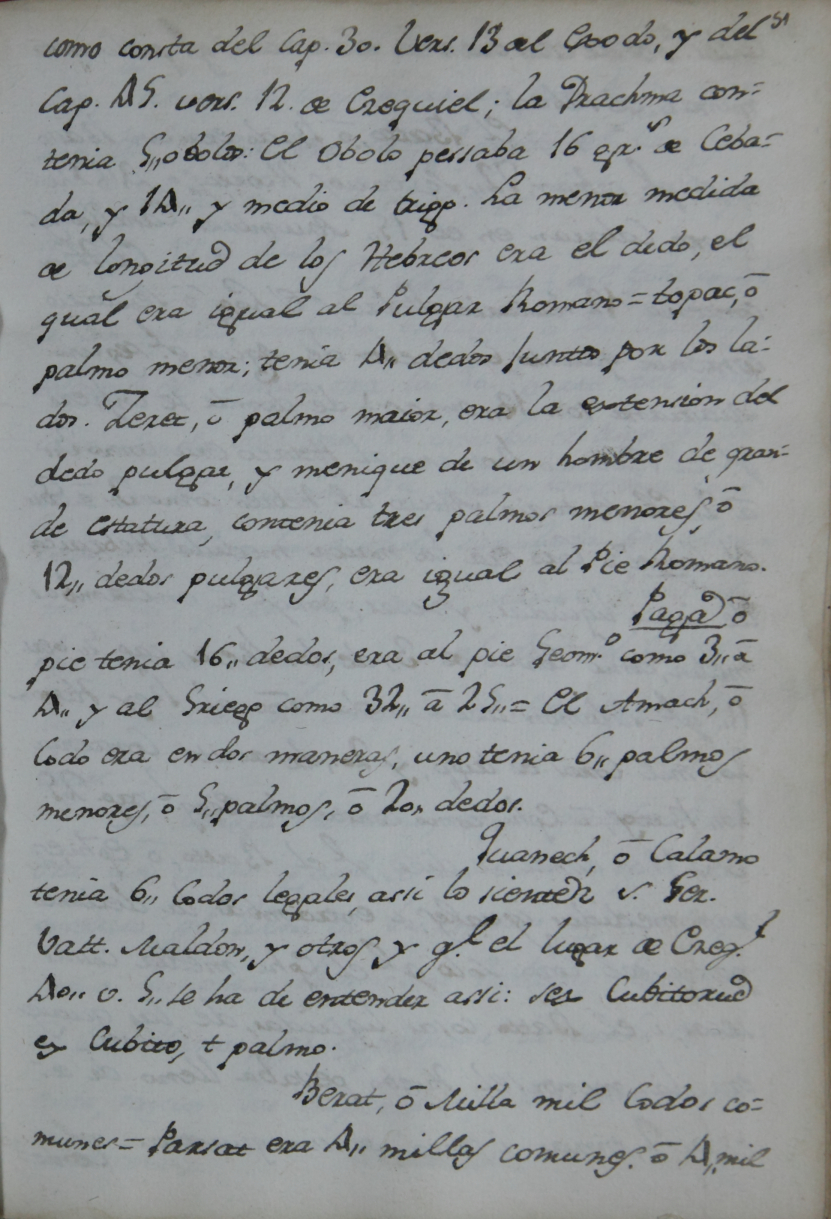 81
como consta del Cap. 30. Vers. 13 del Exodo, y del
Cap. 45. vers. 12. de Ezequiel; la Drachma con=
tenia 5,, obolos: El Obolo pessaba 16 gr.s de Ceba=
da, y 14,, y medio de trigo. La menor medida
de longitud de los Hebreos era el dedo, el
qual era igual al Pulgar Romano = topac, ō
palmo menor; tenia 4,, dedos juntos por los la=
dos. Zeret, ō palmo maior, era la extension del
dedo pulgar, y menique de un hombre de gran=
de estatura, contenia tres palmos menores, ō
12,, dedos pulgares, era igual al Pie Romano.
Pagad ō
pie tenia 16,, dedos, era al pie Geom.o como 3,, ā
4,, y al Griego como 32,, ā 25,, = El Amach, ō
Codo era en dos maneras, uno tenia 6,, palmos
menores, ō 5,, palmos, ō 20,, dedos.
Quanech, ō Calamo
tenia 6,, Codos legales, assi lo sienten S. Ger.
Vatt. Maldon, y otros y q.e el lugar de Ezeq.l
40,, v. 5,, se ha de entender assi: sex Cubitorum
ex Cubito, t palmo.
Berat, ō Milla mil Codos co=
munes = Parsat era 4,, millas comunes. ō 4,, mil